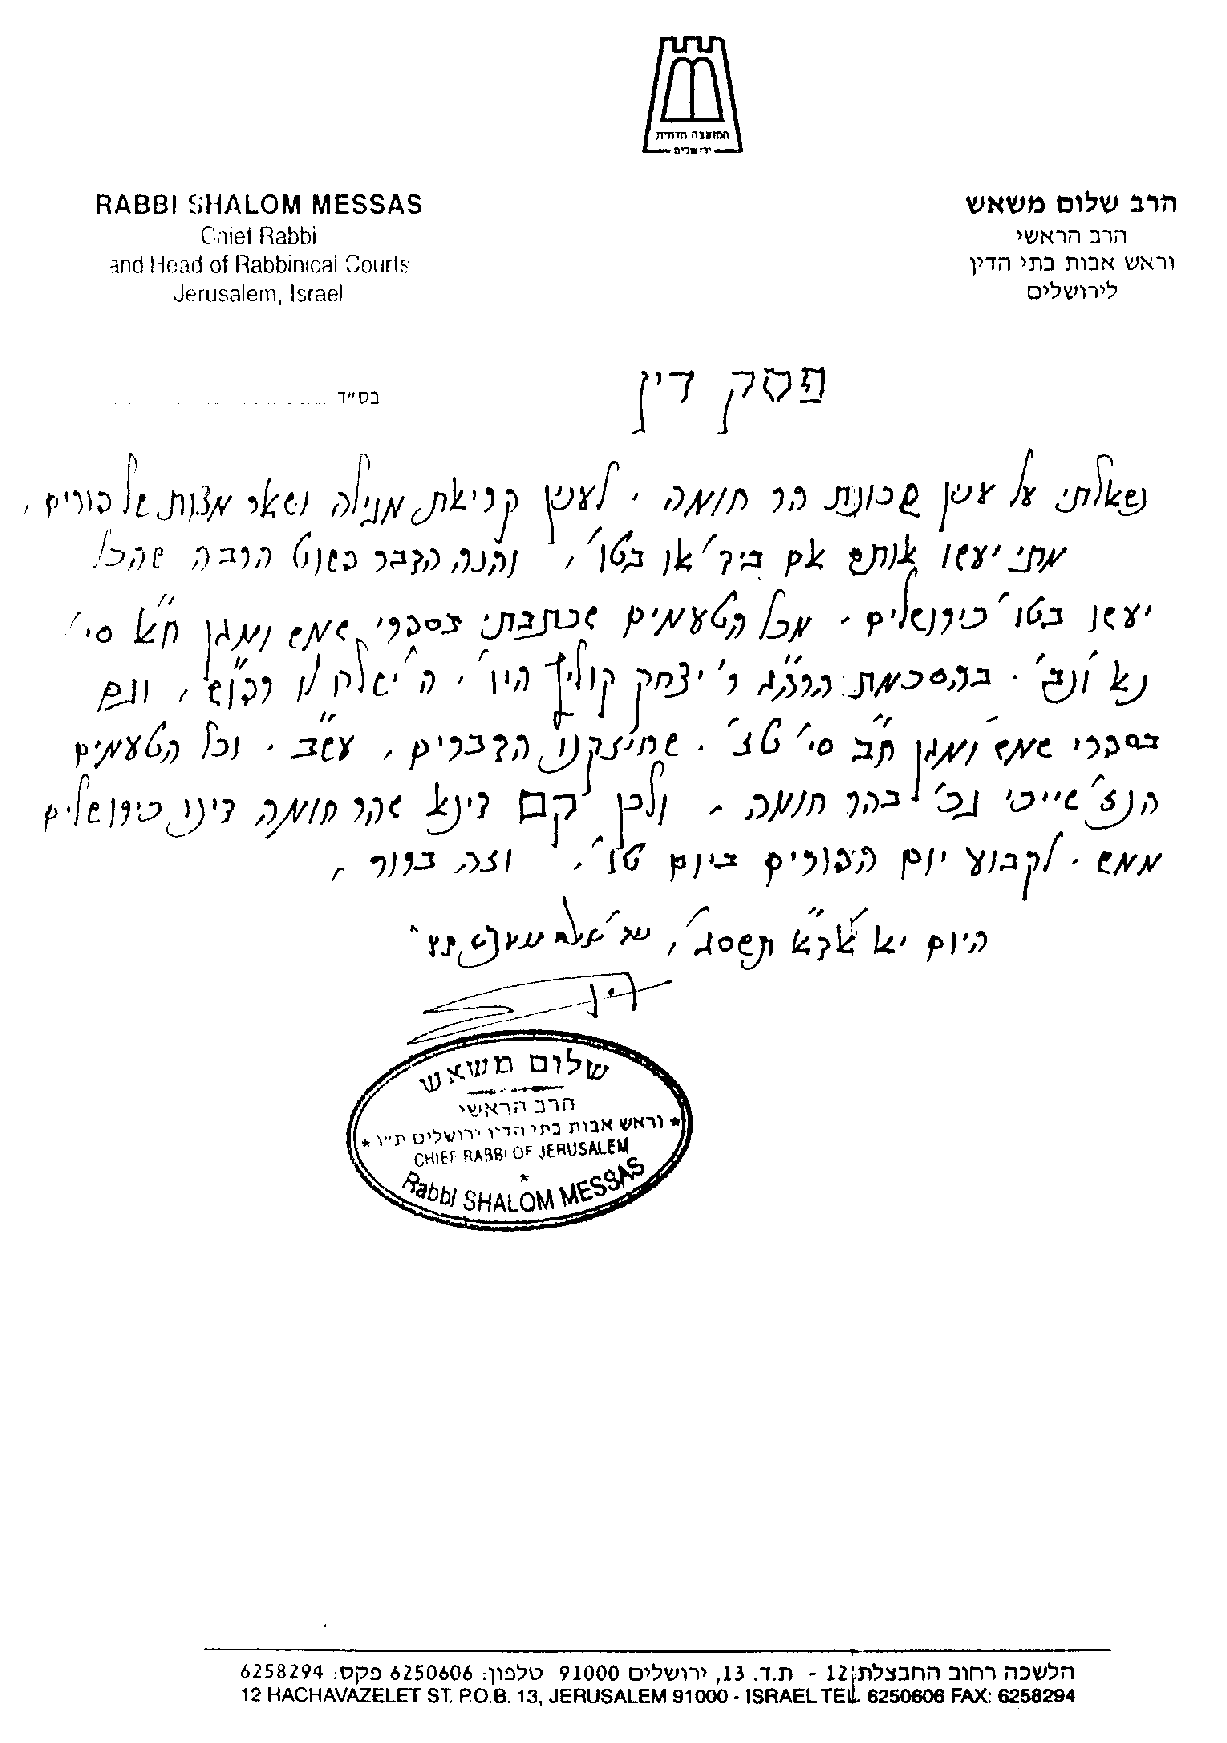 המועצה הדתית
ירושלים
RABBI SHALOM MESSAS
Chief Rabbi
and Head of Rabbinical Courts
Jerusalem, Israel
הרב שלום משאש
הרב הראשי
וראש אבות בתי הדין
לירושלים
בס"ד
פסק דין
נשאלתי על ענין שכונת הר חומה. לענין קריאת מגילה ושאר מצות של פורים,
מתי יעשו אותם אם בי"ד או בטו', והנה הדבר פשוט הרבה שהכל
יעשו בטו' כירושלים. מכל הטעמים שכתבתי בספרי שמש ומגן ח"א סי'
נא' ונב'. בהסכמת הרה"ג ר' יצחק קוליץ הי"ו, ה' ישלח לו רפו"ש, וגם
בספרי שמש ומגן ח"ב סי' טז'. שחיזקנו הדברים, עש"ב. וכל הטעמים
הנז' שייכי נמי בהר חומה, ולכן קם דינא שהר חומה דינו כירושלים
ממש. לקבוע יום הפורים ביום טו', וזה ברור,
היום יא אד"א תשסג',
שלום משאש
הרב הראשי
וראש אבות בתי הדין ירושלים ת"ו
CHIEF RABBI OF JERUSALEM
Rabbi SHALOM MESSAS
הלשכה רחוב החבצלת 12 - ת.ד. 13, ירושלים 91000 טלפון: 6250606 פקס: 6258294
12 HACHAVAZELET ST. P.O.B. 13, JERUSALEM 91000 - ISRAEL TEL. 6250606 FAX: 6258294